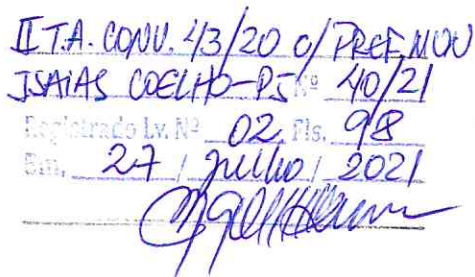 II T.A. CONV. 43/20 C/ PREF. MUN
ISAIAS COELHO-PI Nº 40/21
Registrado Lv. Nº 02 Fls. 98
Em, 27 / Julho / 2021